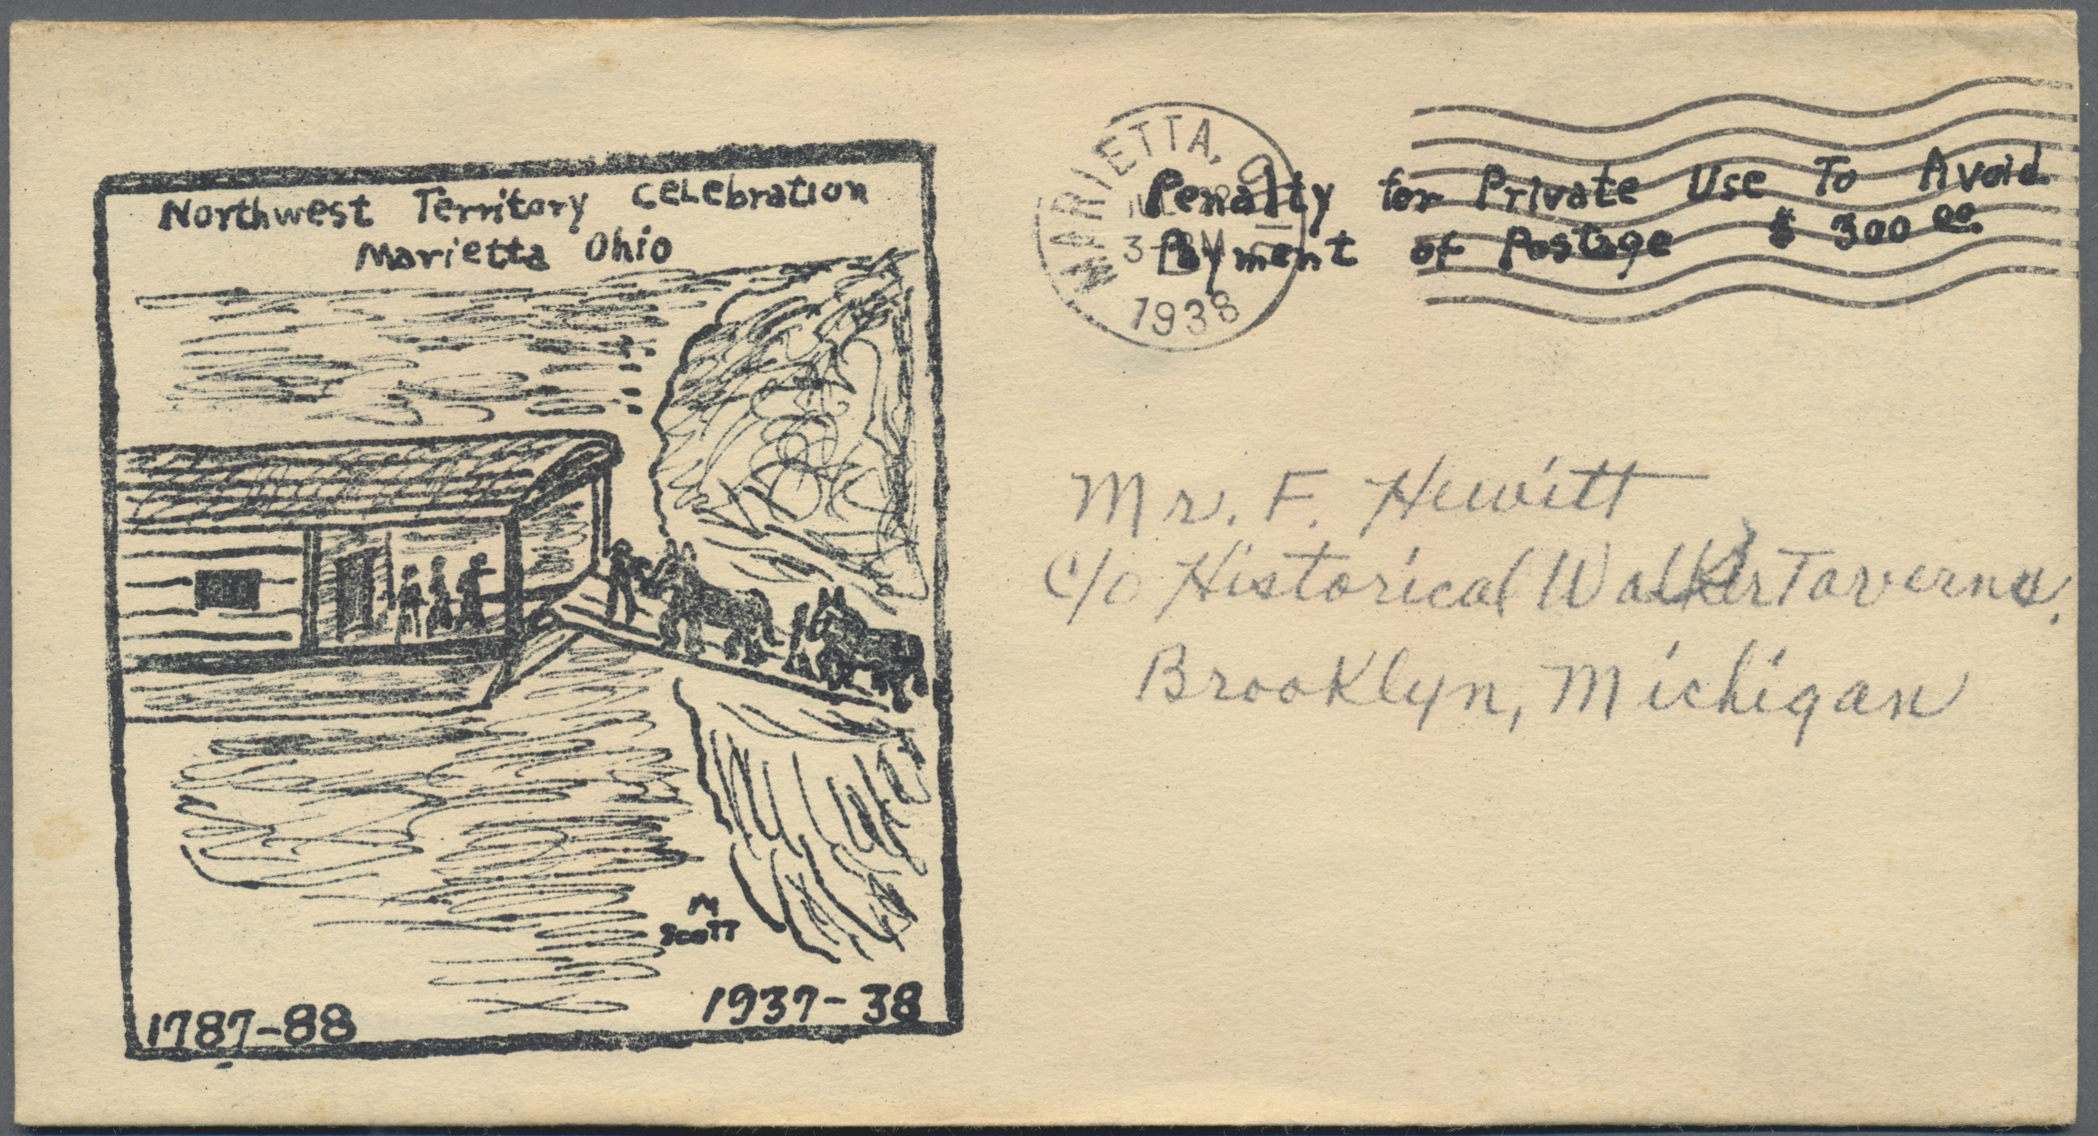 Northwest Territory Celebration
Marietta Ohio
M
Scott
1787-88
1937-38
MARIETTA, O
1938
Penalty for Private Use To Avoid
Payment of Postage $ 300 00.
Mr. F. Hewitt
c/o Historical Walker Taverns,
Brooklyn, Michigan